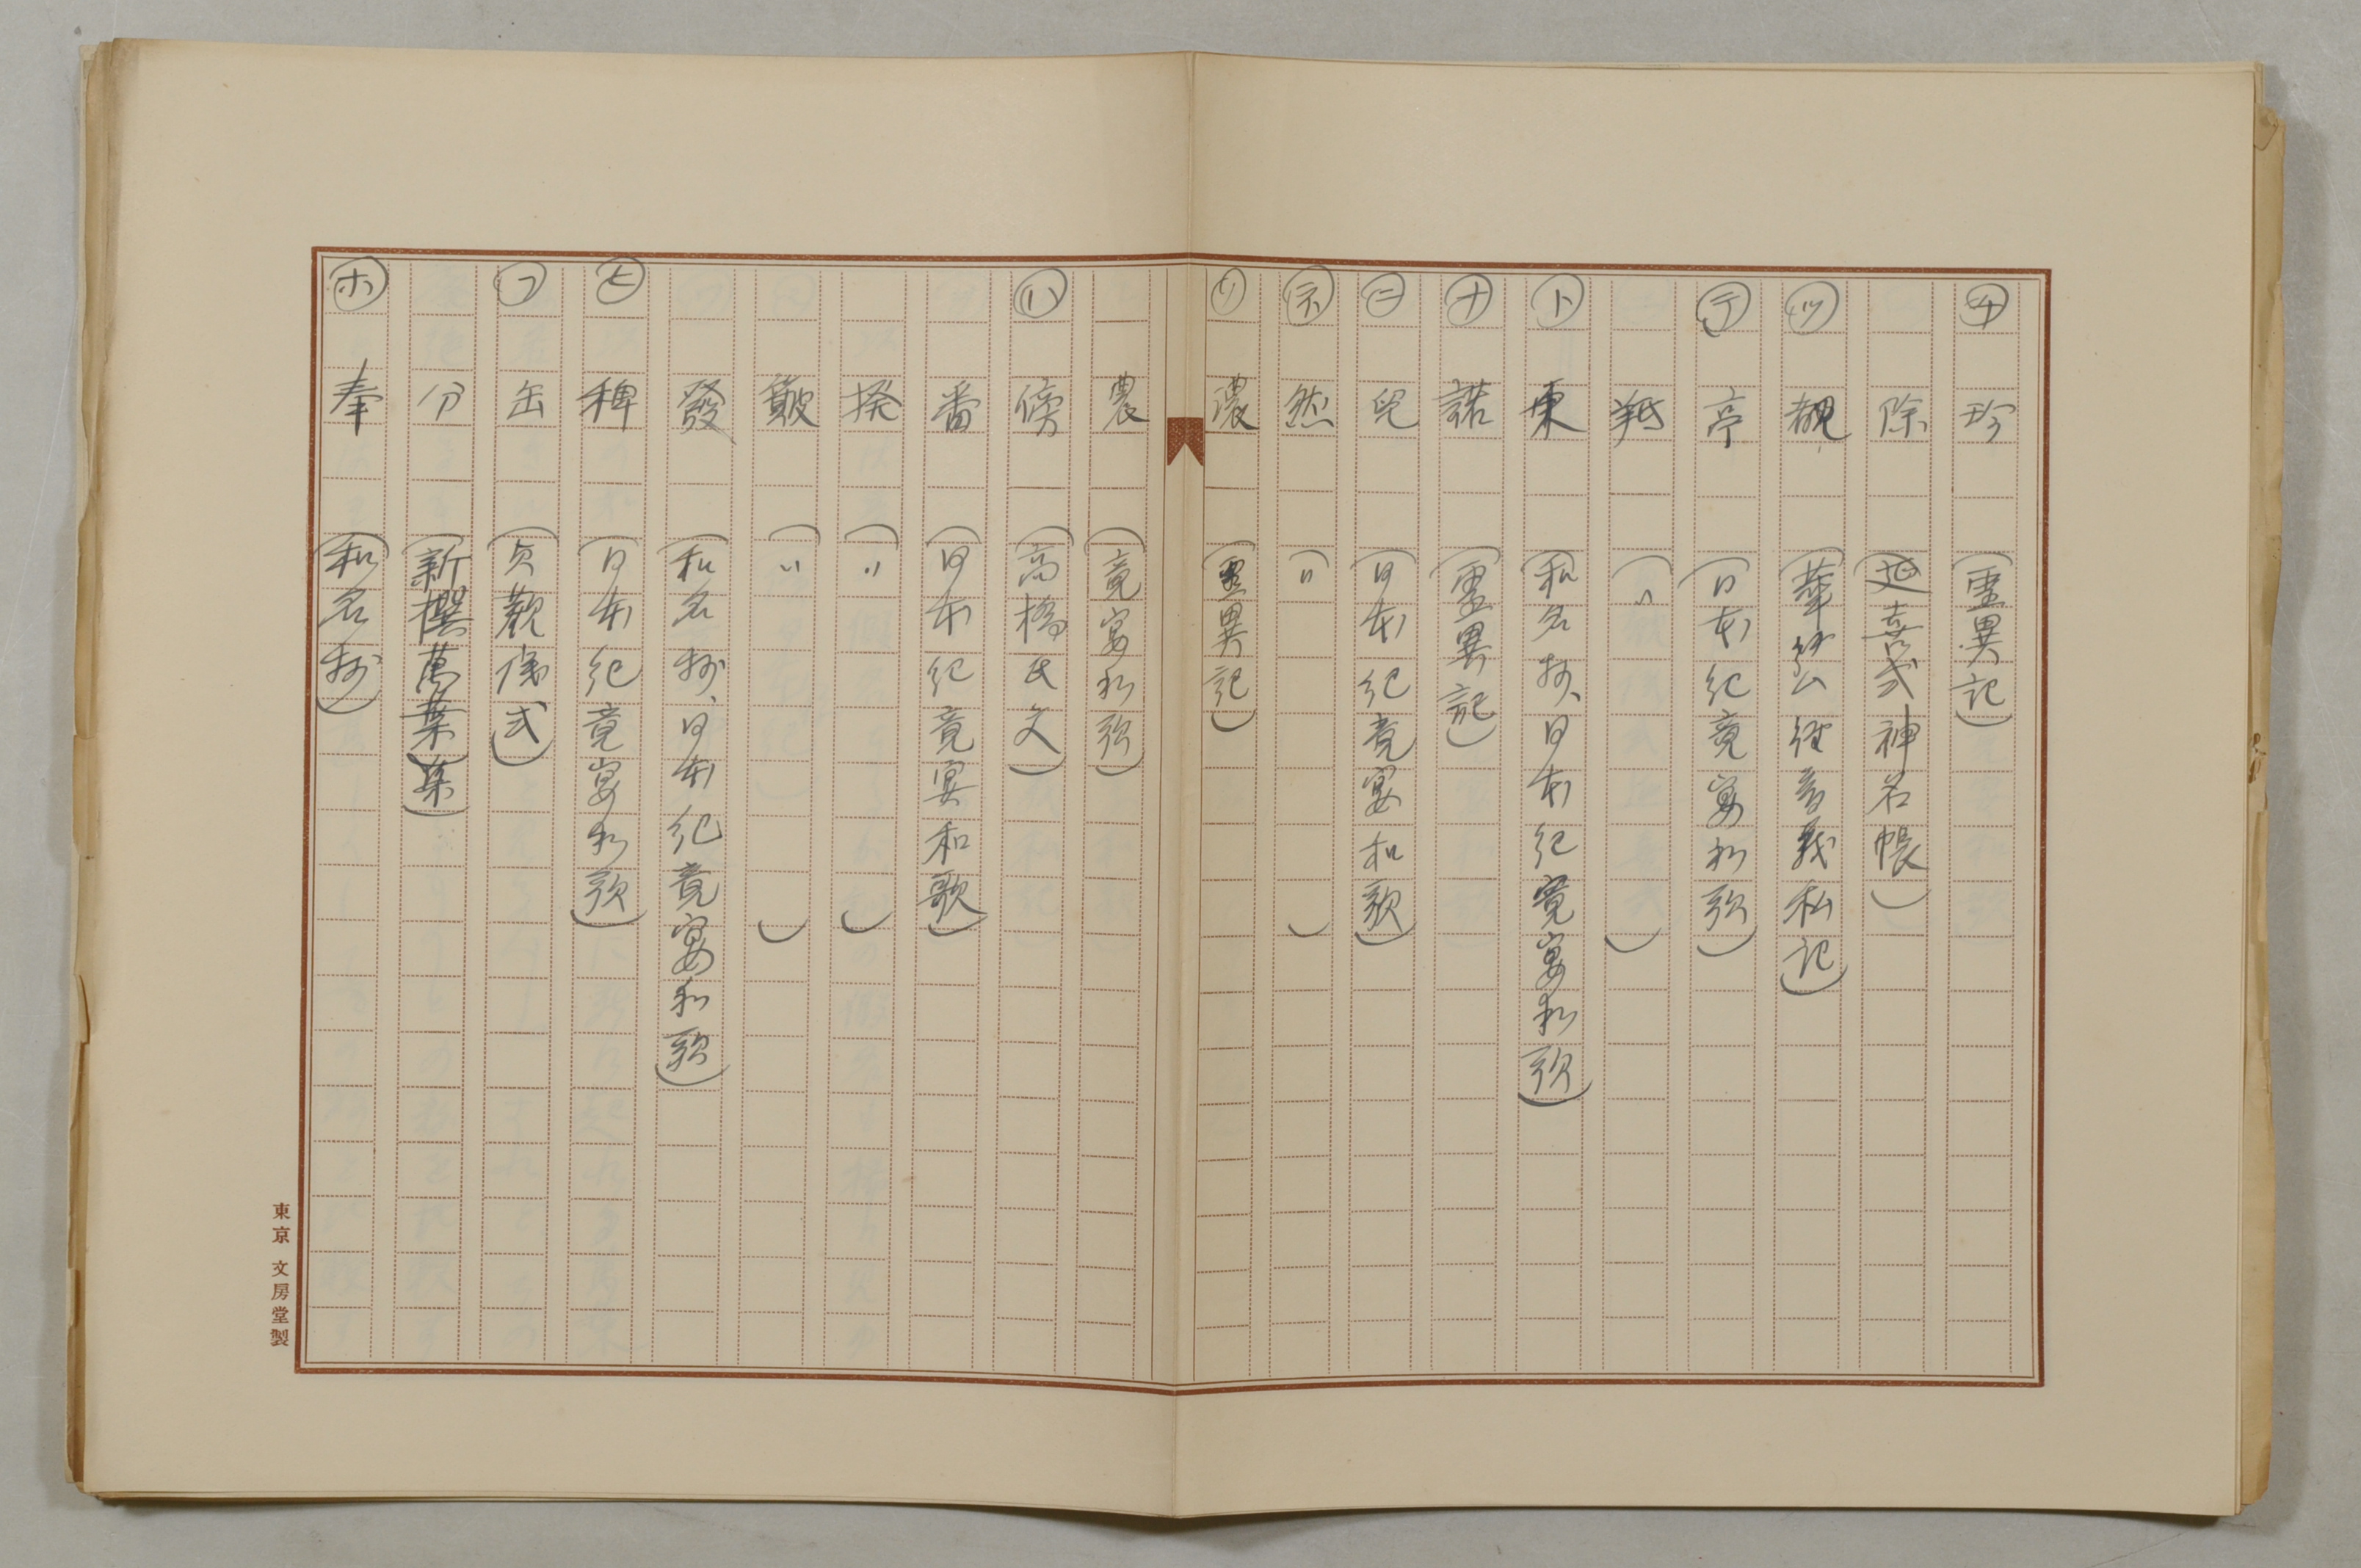 ㋠ 珍 (霊異記)
除 (延喜式神名帳)
㋡ 覩 (華厳経音義私記)
㋢ 亭 (日本紀竟宴和歌)
羝 (〃)
㋣ 東 (和名抄、日本紀竟宴和歌)
㋤ 諾 (霊異記)
㋥ 兒 (日本紀竟宴和歌)
㋧ 然 (〃)
㋨ 濃 (霊異記)
農 (竟宴和歌)
㋩ 傍 (高橋氏文)
番 (日本紀竟宴和歌)
(〃)
皾 (〃)
發 (和名抄、日本紀竟宴和歌)
㋪ 稗 (日本紀竟宴和歌)
㋫ 缶 (貞観儀式)
分 (新撰萬葉集)
㋭ 奉 (和名抄)
東京 文房堂製